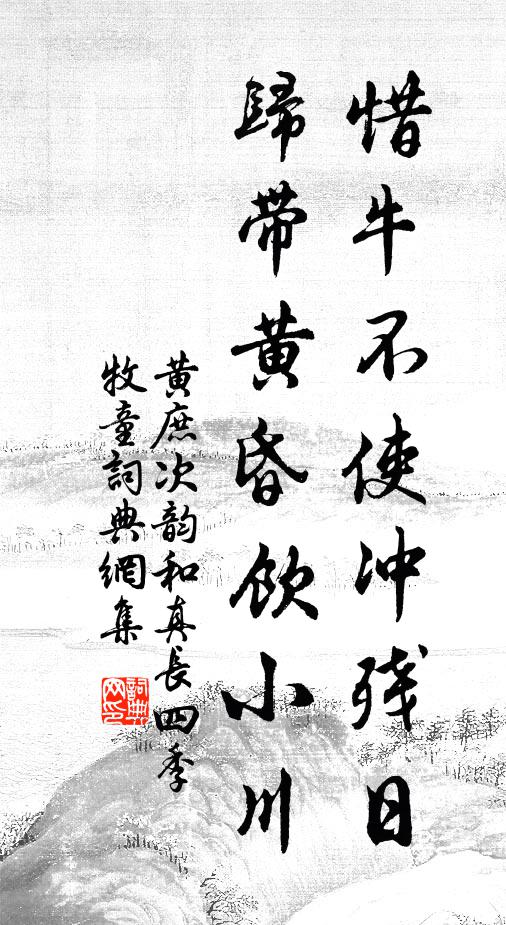 惜牛不使冲残日
歸带黄昏饮小川
黄庶次韵和真長四季
牧童詞典網集
詞典网印